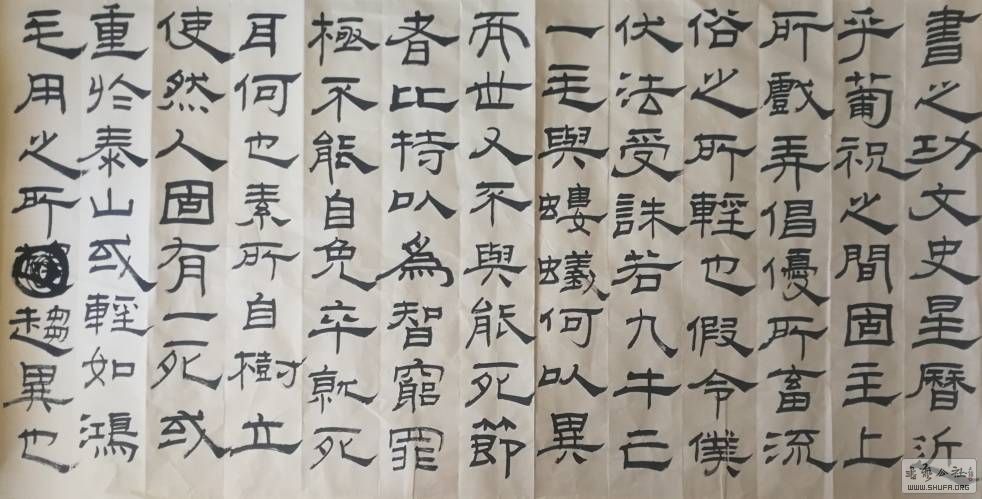 書之功文史星曆近
乎葡祝之間固主上
所戲弄倡優所畜流
俗之所輕也假令僕
伏法受誅若九牛亡
一毛與螻蟻何以異
而世又不與能死節
者比特以為智窮罪
極不能自免卒就死
耳何也素所自樹立
使然人固有一死或
重於泰山或輕如鴻
毛用之所趨異也
WWW.SHUFA.ORG